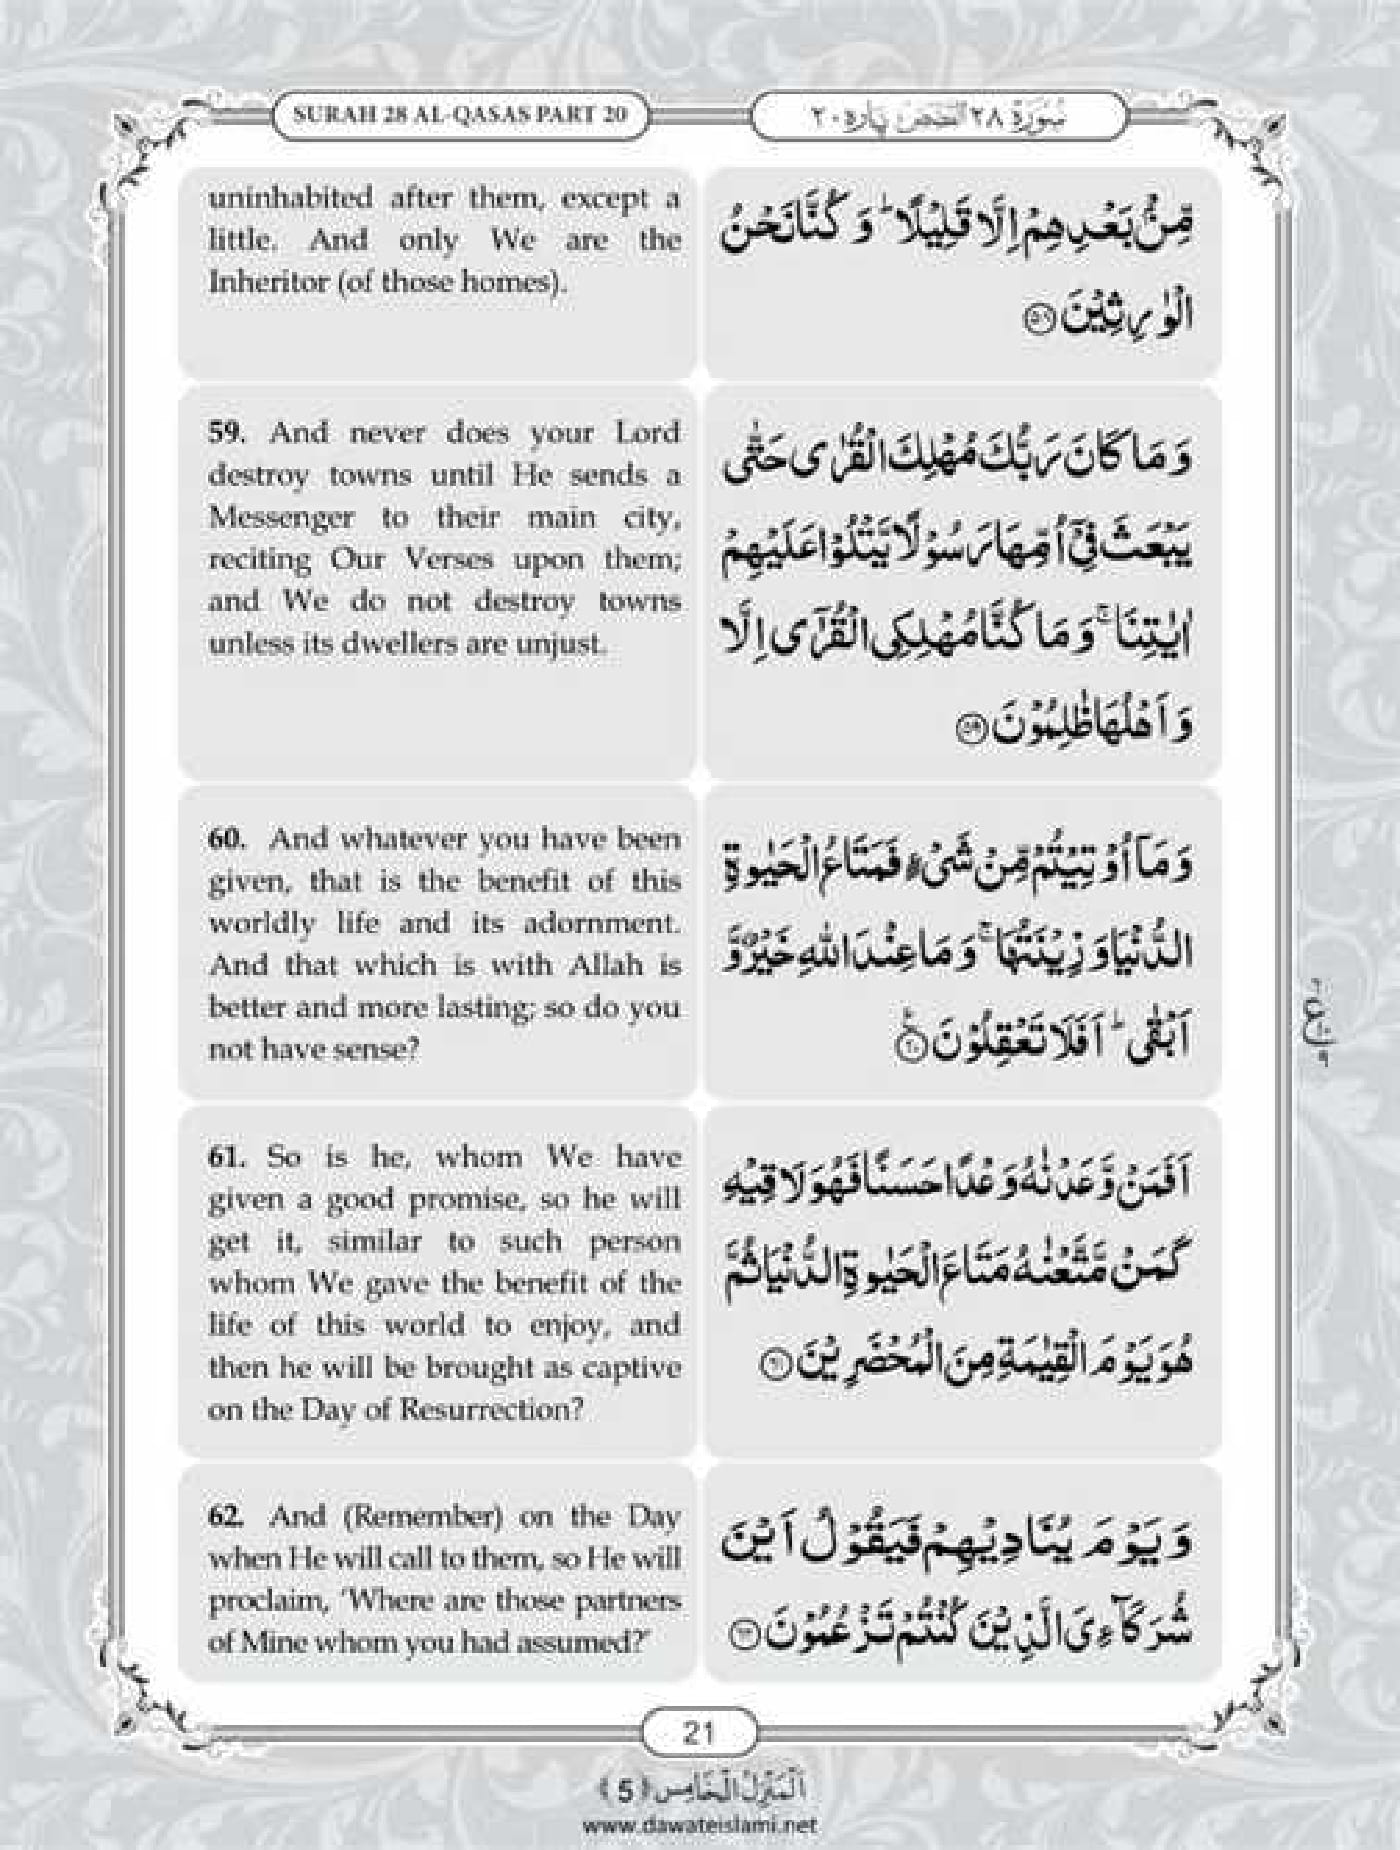 SURAH 28 AL-QASAS PART 20
سُوْرَةُ ٢٨ القصص پاره ٢٠
uninhabited after them, except a
little. And only We are the
Inheritor (of those homes).
مِّنْۢ بَعْدِهِمْ اِلَّا قَلِیْلًا ؕ وَ كُنَّا نَحْنُ
الْوٰرِثِیْنَ ۝۵۸
59. And never does your Lord
destroy towns until He sends a
Messenger to their main city,
reciting Our Verses upon them;
and We do not destroy towns
unless its dwellers are unjust.
وَ مَا كَانَ رَبُّكَ مُهْلِكَ الْقُرٰى حَتّٰى
یَبْعَثَ فِیْۤ اُمِّهَا رَسُوْلًا یَّتْلُوْا عَلَیْهِمْ
اٰیٰتِنَا ۚ وَ مَا كُنَّا مُهْلِكِی الْقُرٰۤى اِلَّا
وَ اَهْلُهَا ظٰلِمُوْنَ ۝۵۹
60. And whatever you have been
given, that is the benefit of this
worldly life and its adornment.
And that which is with Allah is
better and more lasting; so do you
not have sense?
وَ مَاۤ اُوْتِیْتُمْ مِّنْ شَیْءٍ فَمَتَاعُ الْحَیٰوةِ
الدُّنْیَا وَ زِیْنَتُهَا ۚ وَ مَا عِنْدَ اللّٰهِ خَیْرٌ وَّ
اَبْقٰى ؕ اَفَلَا تَعْقِلُوْنَ ۝۶۰
61. So is he, whom We have
given a good promise, so he will
get it, similar to such person
whom We gave the benefit of the
life of this world to enjoy, and
then he will be brought as captive
on the Day of Resurrection?
اَفَمَنْ وَّعَدْنٰهُ وَعْدًا حَسَنًا فَهُوَ لَاقِیْهِ
كَمَنْ مَّتَّعْنٰهُ مَتَاعَ الْحَیٰوةِ الدُّنْیَا ثُمَّ
هُوَ یَوْمَ الْقِیٰمَةِ مِنَ الْمُحْضَرِیْنَ ۝۶۱
62. And (Remember) on the Day
when He will call to them, so He will
proclaim, 'Where are those partners
of Mine whom you had assumed?'
وَ یَوْمَ یُنَادِیْهِمْ فَیَقُوْلُ اَیْنَ
شُرَكَآءِیَ الَّذِیْنَ كُنْتُمْ تَزْعُمُوْنَ ۝۶۲
21
اَلْمَنْزِلُ الْخَامِس ﴿5﴾
www.dawateislami.net